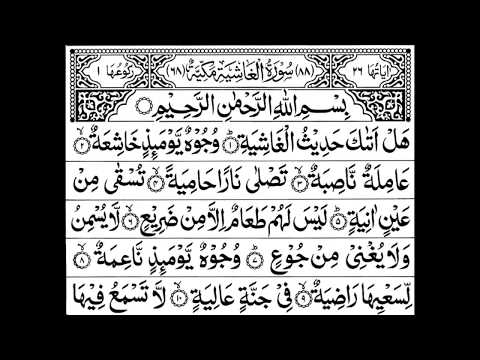 اٰيَاتُهَا ٢٦ (٨٨) سُوْرَةُ الْغَاشِيَةِ مَكِّيَّةٌ (٦٨) رُكُوْعُهَا ١
بِسْمِ اللّٰهِ الرَّحْمٰنِ الرَّحِيْمِ
هَلْ اَتٰىكَ حَدِيْثُ الْغَاشِيَةِ ۝١ وُجُوْهٌ يَّوْمَئِذٍ خَاشِعَةٌ ۝٢
عَامِلَةٌ نَّاصِبَةٌ ۝٣ تَصْلٰى نَارًا حَامِيَةً ۝٤ تُسْقٰى مِنْ
عَيْنٍ اٰنِيَةٍ ۝٥ لَيْسَ لَهُمْ طَعَامٌ اِلَّا مِنْ ضَرِيْعٍ ۝٦ لَّا يُسْمِنُ
وَلَا يُغْنِيْ مِنْ جُوْعٍ ۝٧ وُجُوْهٌ يَّوْمَئِذٍ نَّاعِمَةٌ ۝٨
لِّسَعْيِهَا رَاضِيَةٌ ۝٩ فِيْ جَنَّةٍ عَالِيَةٍ ۝١٠ لَّا تَسْمَعُ فِيْهَا